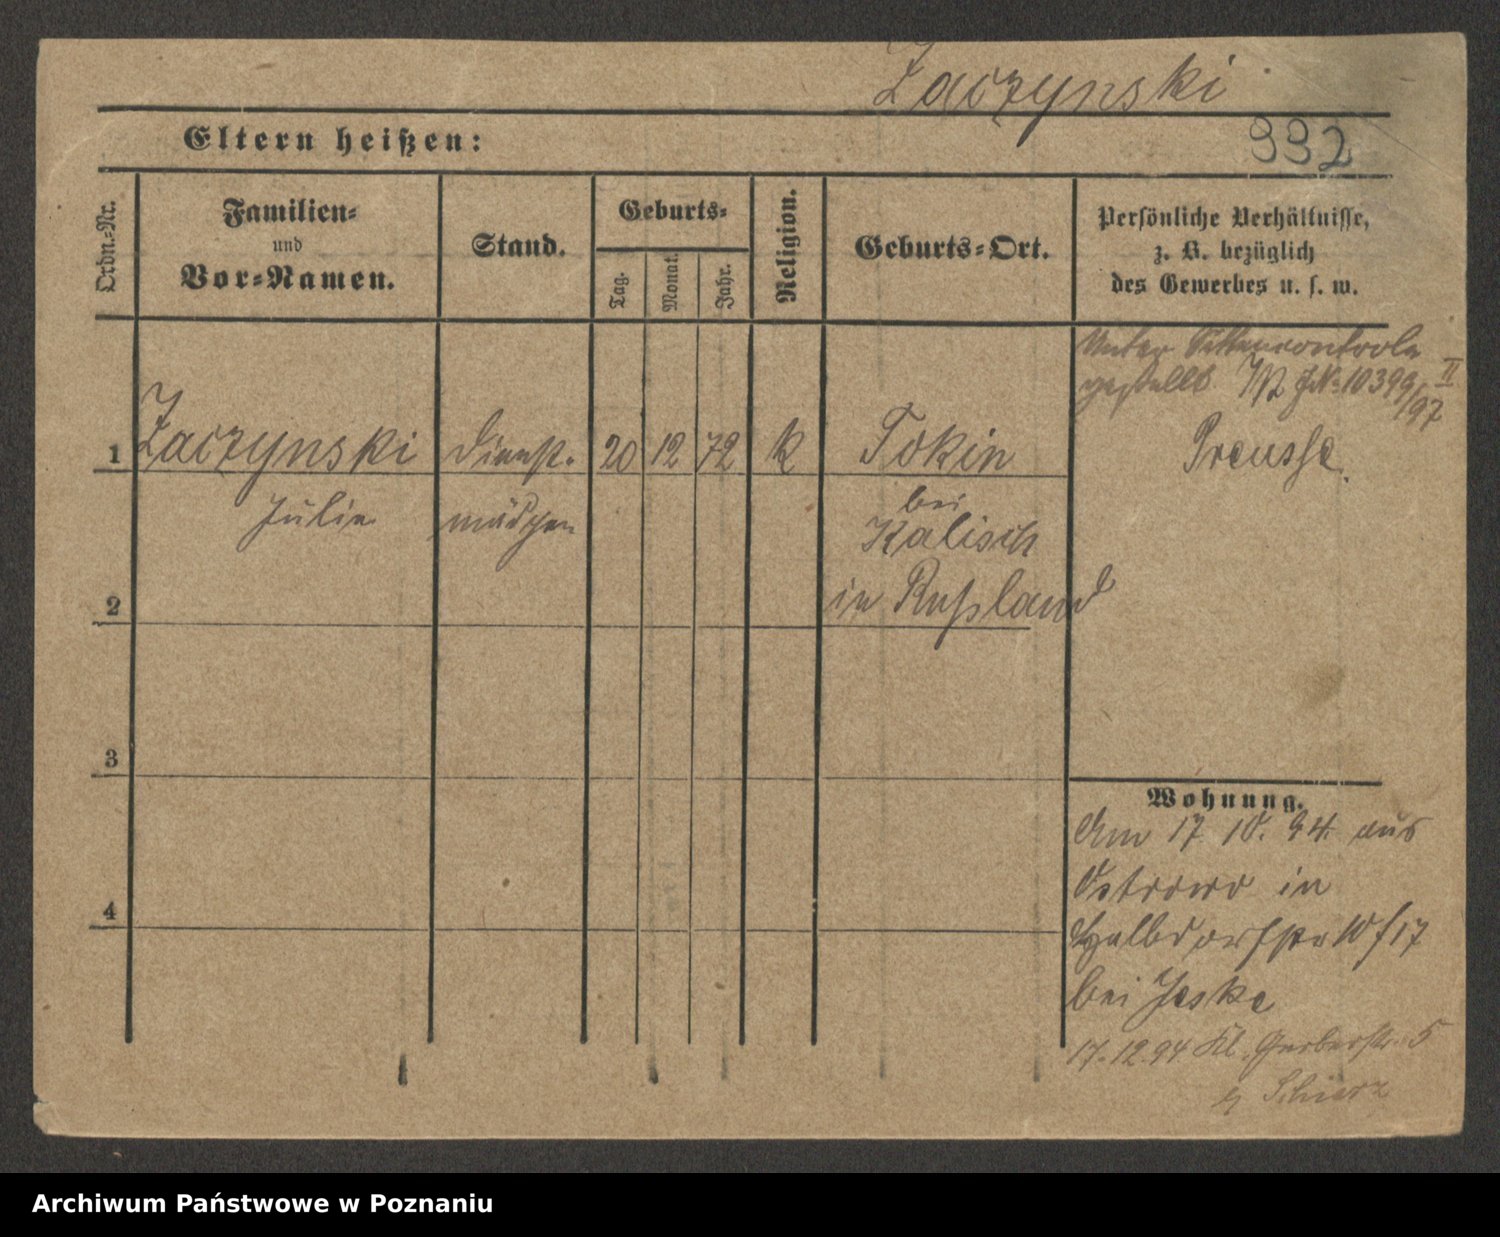 Zaczynski
Eltern heißen:
992
Ordn.-Nr.
Familien-
und
Vor-Namen.
Stand.
Geburts-
Tag.
Monat.
Jahr.
Religion.
Geburts-Ort.
Persönliche Verhältnisse,
z. B. bezüglich
des Gewerbes u. s. w.
Unter Sittencontrole
gestellt JNo 10399/97 II
1 Zaczynski Dienst- 20 12 72 k Tokin Preusse.
Julie mädchen bei
Kalisch
2 in Rußland
3
Wohnung.
Am 17 10. 94. aus
Ostrowo in
4
Halbdorfstr 17
bei Jeske
17.12.94 Kl. Gerberstr. 5
b/ Schierz
Archiwum Państwowe w Poznaniu